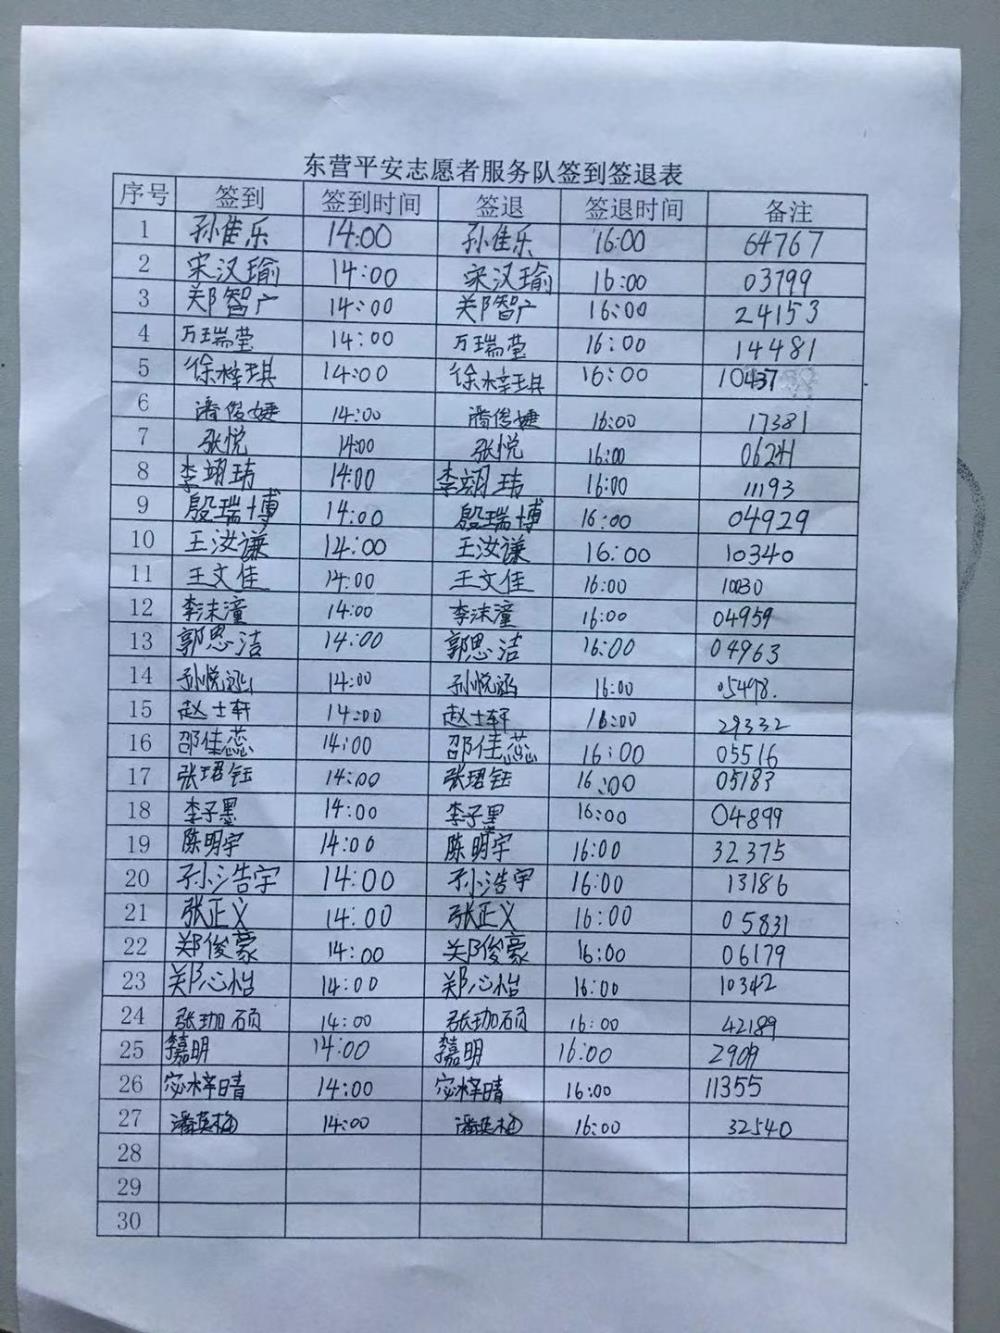 东营平安志愿者服务队签到签退表
序号 签到 签到时间 签退 签退时间 备注
1 孙佳乐 14:00 孙佳乐 16:00 64767
2 宋汉瑜 14:00 宋汉瑜 16:00 03799
3 郑智广 14:00 郑智广 16:00 24153
4 万瑞莹 14:00 万瑞莹 16:00 14481
5 徐梓琪 14:00 徐梓琪 16:00 10437
6 潘俊婕 14:00 潘俊婕 16:00 17381
7 张悦 14:00 张悦 16:00 06241
8 李翊玮 14:00 李翊玮 16:00 11193
9 殷瑞博 14:00 殷瑞博 16:00 04929
10 王汝谦 14:00 王汝谦 16:00 10340
11 王文佳 14:00 王文佳 16:00 10030
12 李沫潼 14:00 李沫潼 16:00 04959
13 郭思洁 14:00 郭思洁 16:00 04963
14 孙悦涵 14:00 孙悦涵 16:00 05498.
15 赵士轩 14:00 赵士轩 16:00 29332
16 邵佳蕊 14:00 邵佳蕊 16:00 05516
17 张珺钰 14:00 张珺钰 16:00 05183
18 李子墨 14:00 李子墨 16:00 04899
19 陈明宇 14:00 陈明宇 16:00 32375
20 孙浩宇 14:00 孙浩宇 16:00 13186
21 张正义 14:00 张正义 16:00 05831
22 郑俊豪 14:00 郑俊豪 16:00 06179
23 郑心怡 14:00 郑心怡 16:00 10342
24 张珈硕 14:00 张珈硕 16:00 42189
25 李嘉明 14:00 李嘉明 16:00
26 宓梓晴 14:00 宓梓晴 16:00 11355
27 潘英梅 14:00 潘英梅 16:00 32540
28
29
30